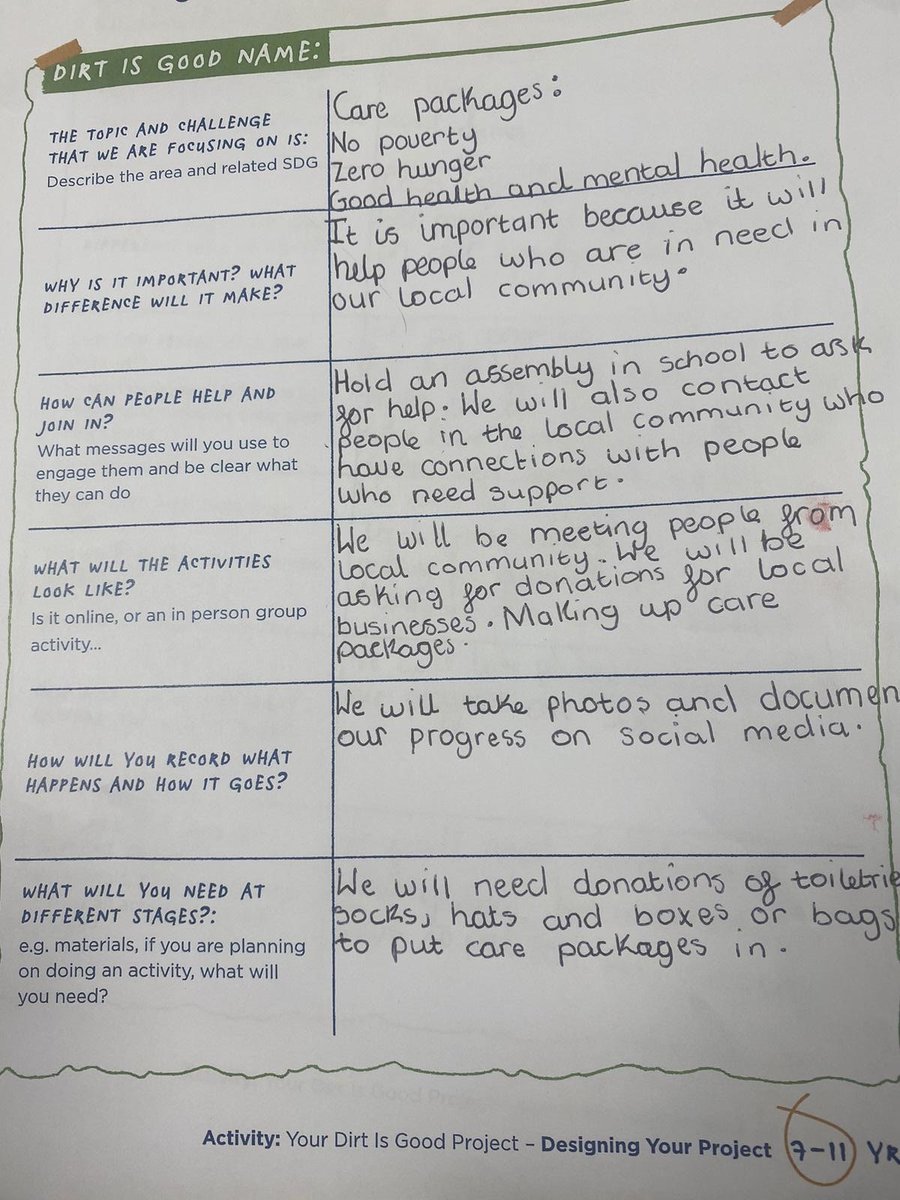 DIRT IS GOOD NAME:
THE TOPIC AND CHALLENGE
THAT WE ARE FOCUSING ON IS:
Describe the area and related SDG
Care packages:
No poverty
Zero hunger
Good health and mental health.
WHY IS IT IMPORTANT? WHAT
DIFFERENCE WILL IT MAKE?
It is important because it will
help people who are in need in
our local community.
HOW CAN PEOPLE HELP AND
JOIN IN?
What messages will you use to
engage them and be clear what
they can do
Hold an assembly in school to ask
for help. We will also contact
people in the local community who
have connections with people
who need support.
WHAT WILL THE ACTIVITIES
LOOK LIKE?
Is it online, or an in person group
activity...
We will be meeting people from
local community. We will be
asking for donations for local
businesses. Making up care
packages.
HOW WILL YOU RECORD WHAT
HAPPENS AND HOW IT GOES?
We will take photos and documen
our progress on social media.
WHAT WILL YOU NEED AT
DIFFERENT STAGES?:
e.g. materials, if you are planning
on doing an activity, what will
you need?
We will need donations of toiletrie
socks, hats and boxes or bags
to put care packages in.
Activity: Your Dirt Is Good Project – Designing Your Project 7-11 YR